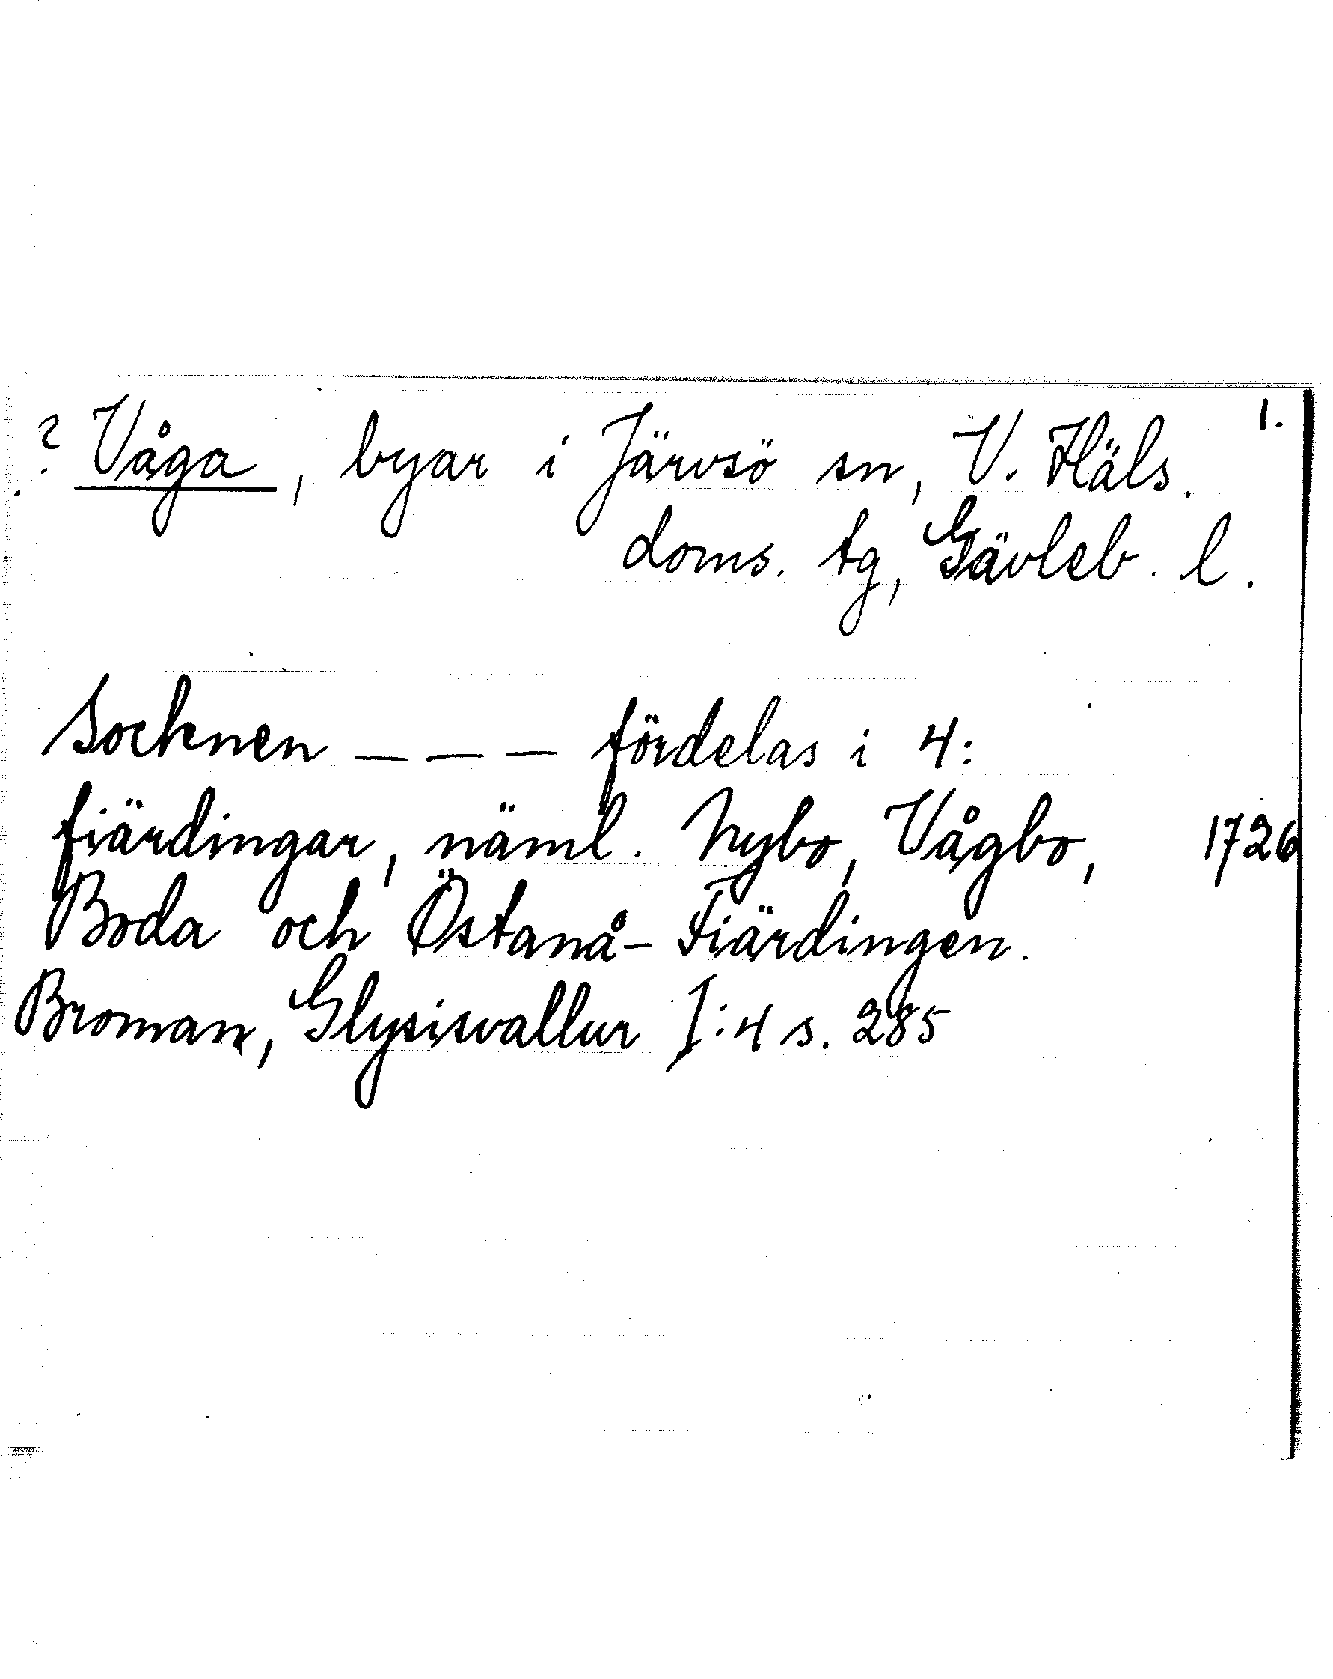 1.
? Våga, byar i Järvsö sn, V. Häls.
doms. tg, Gävleb. l.
Socknen – – – fördelas i 4:
fiärdingar, näml. Nybo, Vågbo, 1726
Boda och Östanå-Fiärdingen.
Broman, Glysisvallur I:4 s. 285